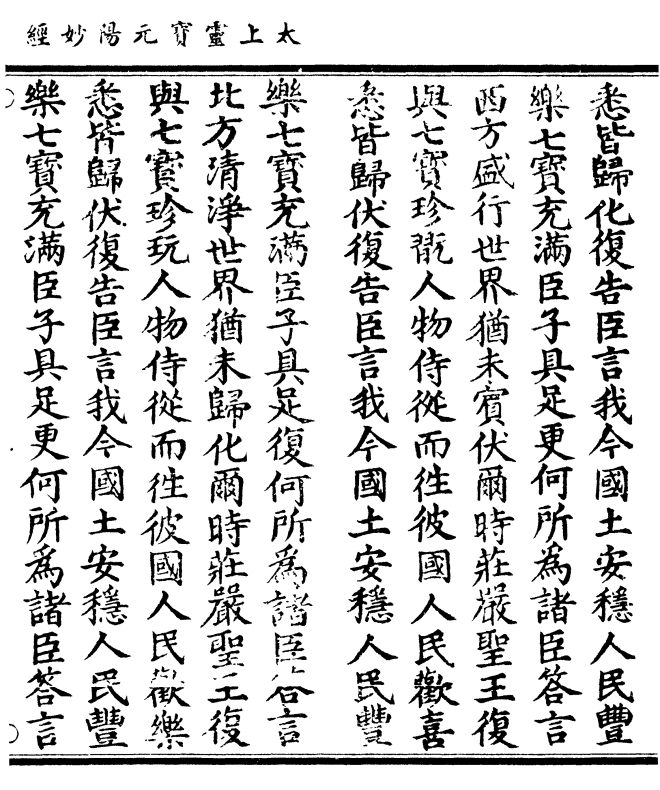 太上靈寶元陽妙經
悉皆歸化復告臣言我今國土安穩人民豊
樂七寶充滿臣子具足更何所為諸臣答言
西方盛行世界猶未賓伏爾時莊嚴聖王復
與七寶珍翫人物侍從而徃彼國人民歡喜
悉皆歸伏復告臣言我今國土安穩人民豊
樂七寶充滿臣子具足復何所為諸臣答言
北方清淨世界猶未歸化爾時莊嚴聖王復
與七寶珍玩人物侍從而徃彼國人民歡樂
悉皆歸伏復告臣言我今國土安穩人民豊
樂七寶充滿臣子具足更何所為諸臣答言